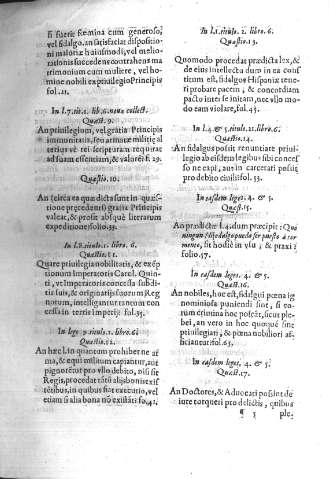 si fuerit fœmina cum generoso,
vel fidalgo, an satisfaciat dispositio
ni maioriæ huiusmodi, vel melio-
rationis succedens contrahens ma
trimonium cum muliere, vel ho-
mine nobili ex priuilegio Principis
fol.21.
In l.7. titu. 1. lib. 6. noua collect.
Quæst. 9.
An priuilegium, vel gratia Principis
immunitatis, seu armaræ militiæ al
terius vè rei scripturam requirat
ad suam essentiam, & valorē f. 29.
Quæstio. 10.
An (circa ea quæ dicta sunt in quæ-
stione præcedenti) gratia Principis
valeat, & prosit absque literarum
expeditione folio. 33.
In l.8. titulo. 1. libro. 6.
Quæstio. 11.
Quare priuilegia nobilitatis, & exēp
tionum Imperatoris Carol. Quin-
ti, vt Imperatoris concessa subdi-
tis suis, & originarijs suorum Reg
norum, intelligantur tantum con
cessa in tertis imperij: fol. 35.
In lege 9. titulo. 1. libro. 6.
Quæstio. 12.
An hæc l. in quantum prohibet ne ar
ma, & equi militum capiantur, aut
pignorētur pro vllo debito, nisi sit
Regis, procedat etiā alijs bonis exi
stētibus, in quibus fiat executio, vel
etiam si alia bona nō existāt: fo. 42.
In l.1. titulo. 2. libro. 6.
Quæstio. 13.
Quomodo procedat prædicta lex, &
de eius intellectu dum in ea consti
tutum est, fidalgos Hispaniæ tene-
ri probare pacem, & concordiam
pacto inter se initam, nec vllo mo-
do eam violare, fol. 45.
In l.4. & 5. titulo. 2. libro. 6.
Quæstio. 14.
An fidalgus possit renuntiare priuile
gio ab eisdem legibus sibi conces
so ne capi, aut in carcerari possit
pro debito ciuili: fol. 53.
In easdem leges. 4. & 5.
Quæst. 15.
An prædictæ l.4. dum præcipit: Que
ningun hijodalgo pueda ser puesto a tor-
mento, sit hodie in vsu, & praxi:
folio. 57.
In easdem leges. 4. & 5.
Quæst. 16.
An nobiles, hoc est, fidalgui pœna ig
nominiosa puniendi sint, si eo-
rum crimina hoc poscāt, sicut plebei,
an vero in hoc quoque sint
priuilegiati, & pœna nobiliori af-
ficiantur: fol. 65.
In easdem leges. 4. & 5.
Quæst. 17.
An Doctores, & Aduocati possint de
iure torqueri pro delictis, quibus
¶ 3 ple-